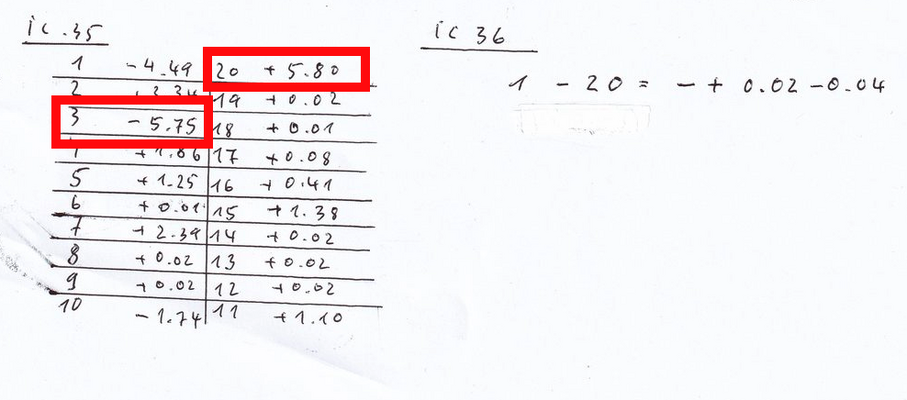 ic.35
1 -4.49 20 +5.80
2 19 +0.02
3 -5.75 18 +0.01
+1.86 17 +0.08
5 +1.25 16 +0.41
6 +0.01 15 +1.38
7 +2.39 14 +0.02
8 +0.02 13 +0.02
9 +0.02 12 +0.02
10 -1.74 11 +1.10
ic 36
1 - 20 = - + 0.02 - 0.04